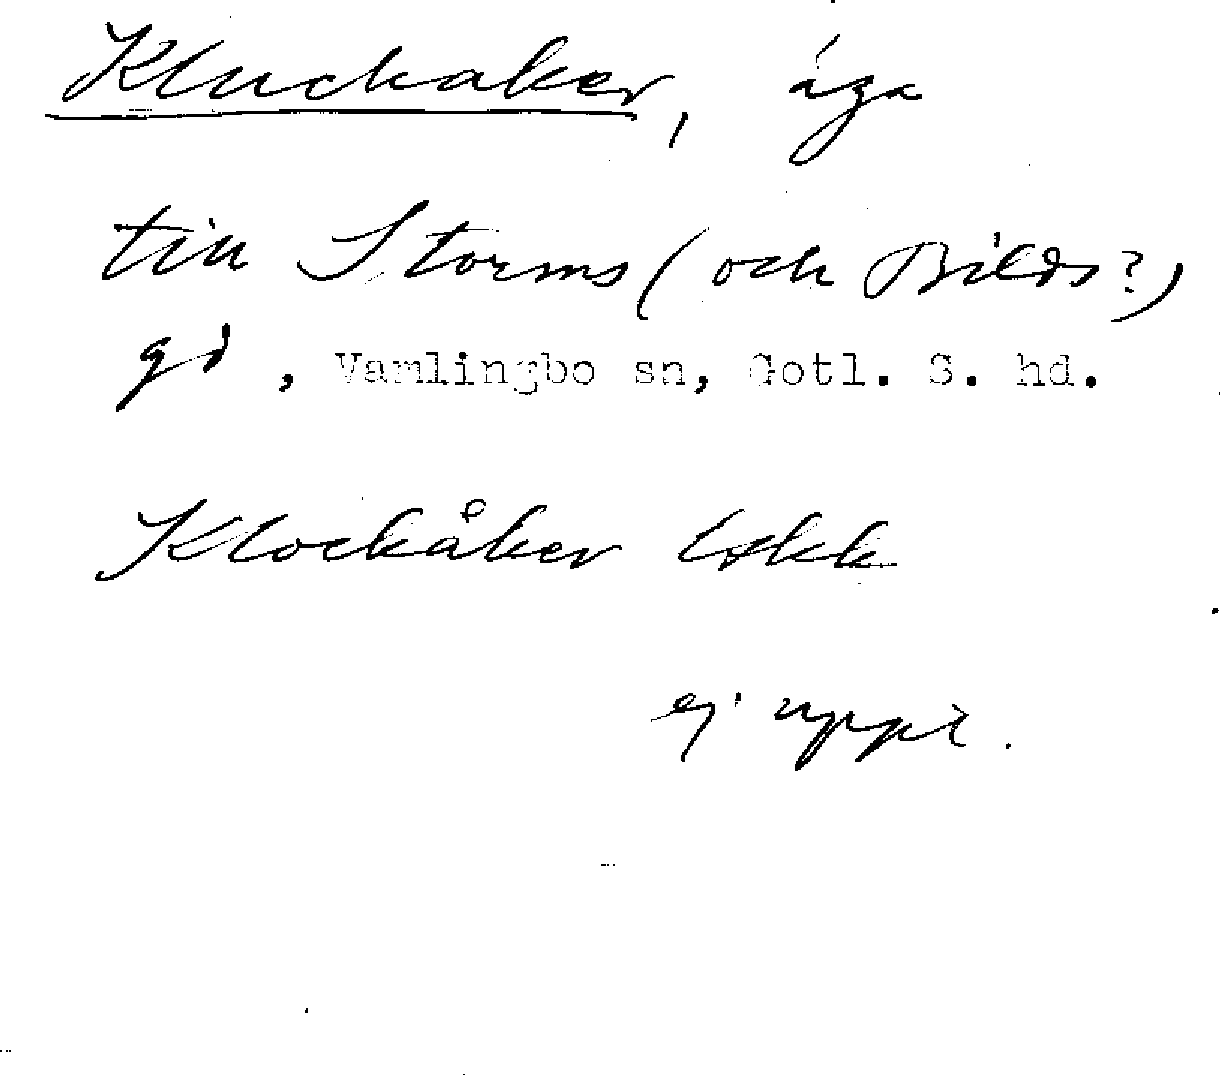 Kluckaker, äga
till Storms (och Bilds?)
gd, Vamlingbo sn, Gotl. S. hd.
Klockåker
ej uppt.